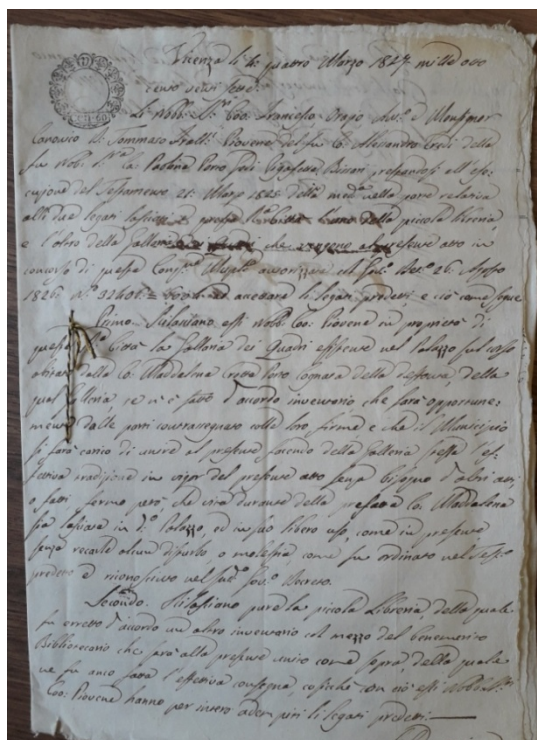 Vicenza li 4: quatro Marzo 1827 mille otto
cento venti sette:
Li Nobb. Sri. Coo: Francesco Orazio Cher. e Monsignor
Canonico D. Tommaso Fratli. Piovene del fu Co: Alessandro Eredi della
fu Nobi. Sra. Ca Paolina Porto Godi Pigafetta Bissari prestandosi all'ese-
cuzione del Testamento 21: Marzo 1825 della meda. nella parte relativa
alli due legati lasciati a questa Città l'uno della piccola libreria
e l'altro della Galleria che vengono al presente atto in
concorso di questa Congne. Municipl. autorizzata col Det. 26: Agosto
1826: No. 32401: ad accettare li legati predetti e ciò come segue
Primo. Rilasciano essi Nobb. Coo: Piovene in proprietà di
questa Ra. Città la Galleria dei Quadri esistente nel Palazzo sul corso
abitato dalla Co: Maddalena Porto Cognata della defonta, della
qual Galleria, se n'è fatto d'accordo inventario che sarà opportune-
mente dalle parti contrassegnato colle loro firme e che il Municipio
si farà carico di unire al presente facendo della Galleria stessa l'ef-
fettiva tradizione in vigor del presente atto senza bisogno d'altri atti,
o fatti fermo però che vita durante della prefata Co: Maddalena
sia lasciata in do. Palazzo, ed in suo libero uso, come in presente
senza recarle alcun disturbo, o molestia, come fu ordinato nel Testo
predetto e riconosciuto nel sud. Decreto.
Secondo. Rilasciano pure la piccola Libreria della quale
fu eretto d'accordo un altro inventario col mezzo del benemerito
Bibliotecario che farà alla presente unito come sopra, della quale
ne fu anco fatta l'effettiva consegna cosichè con ciò essi Nobb. Sri.
Coo: Piovene hanno per intero adempiti li legati predetti.